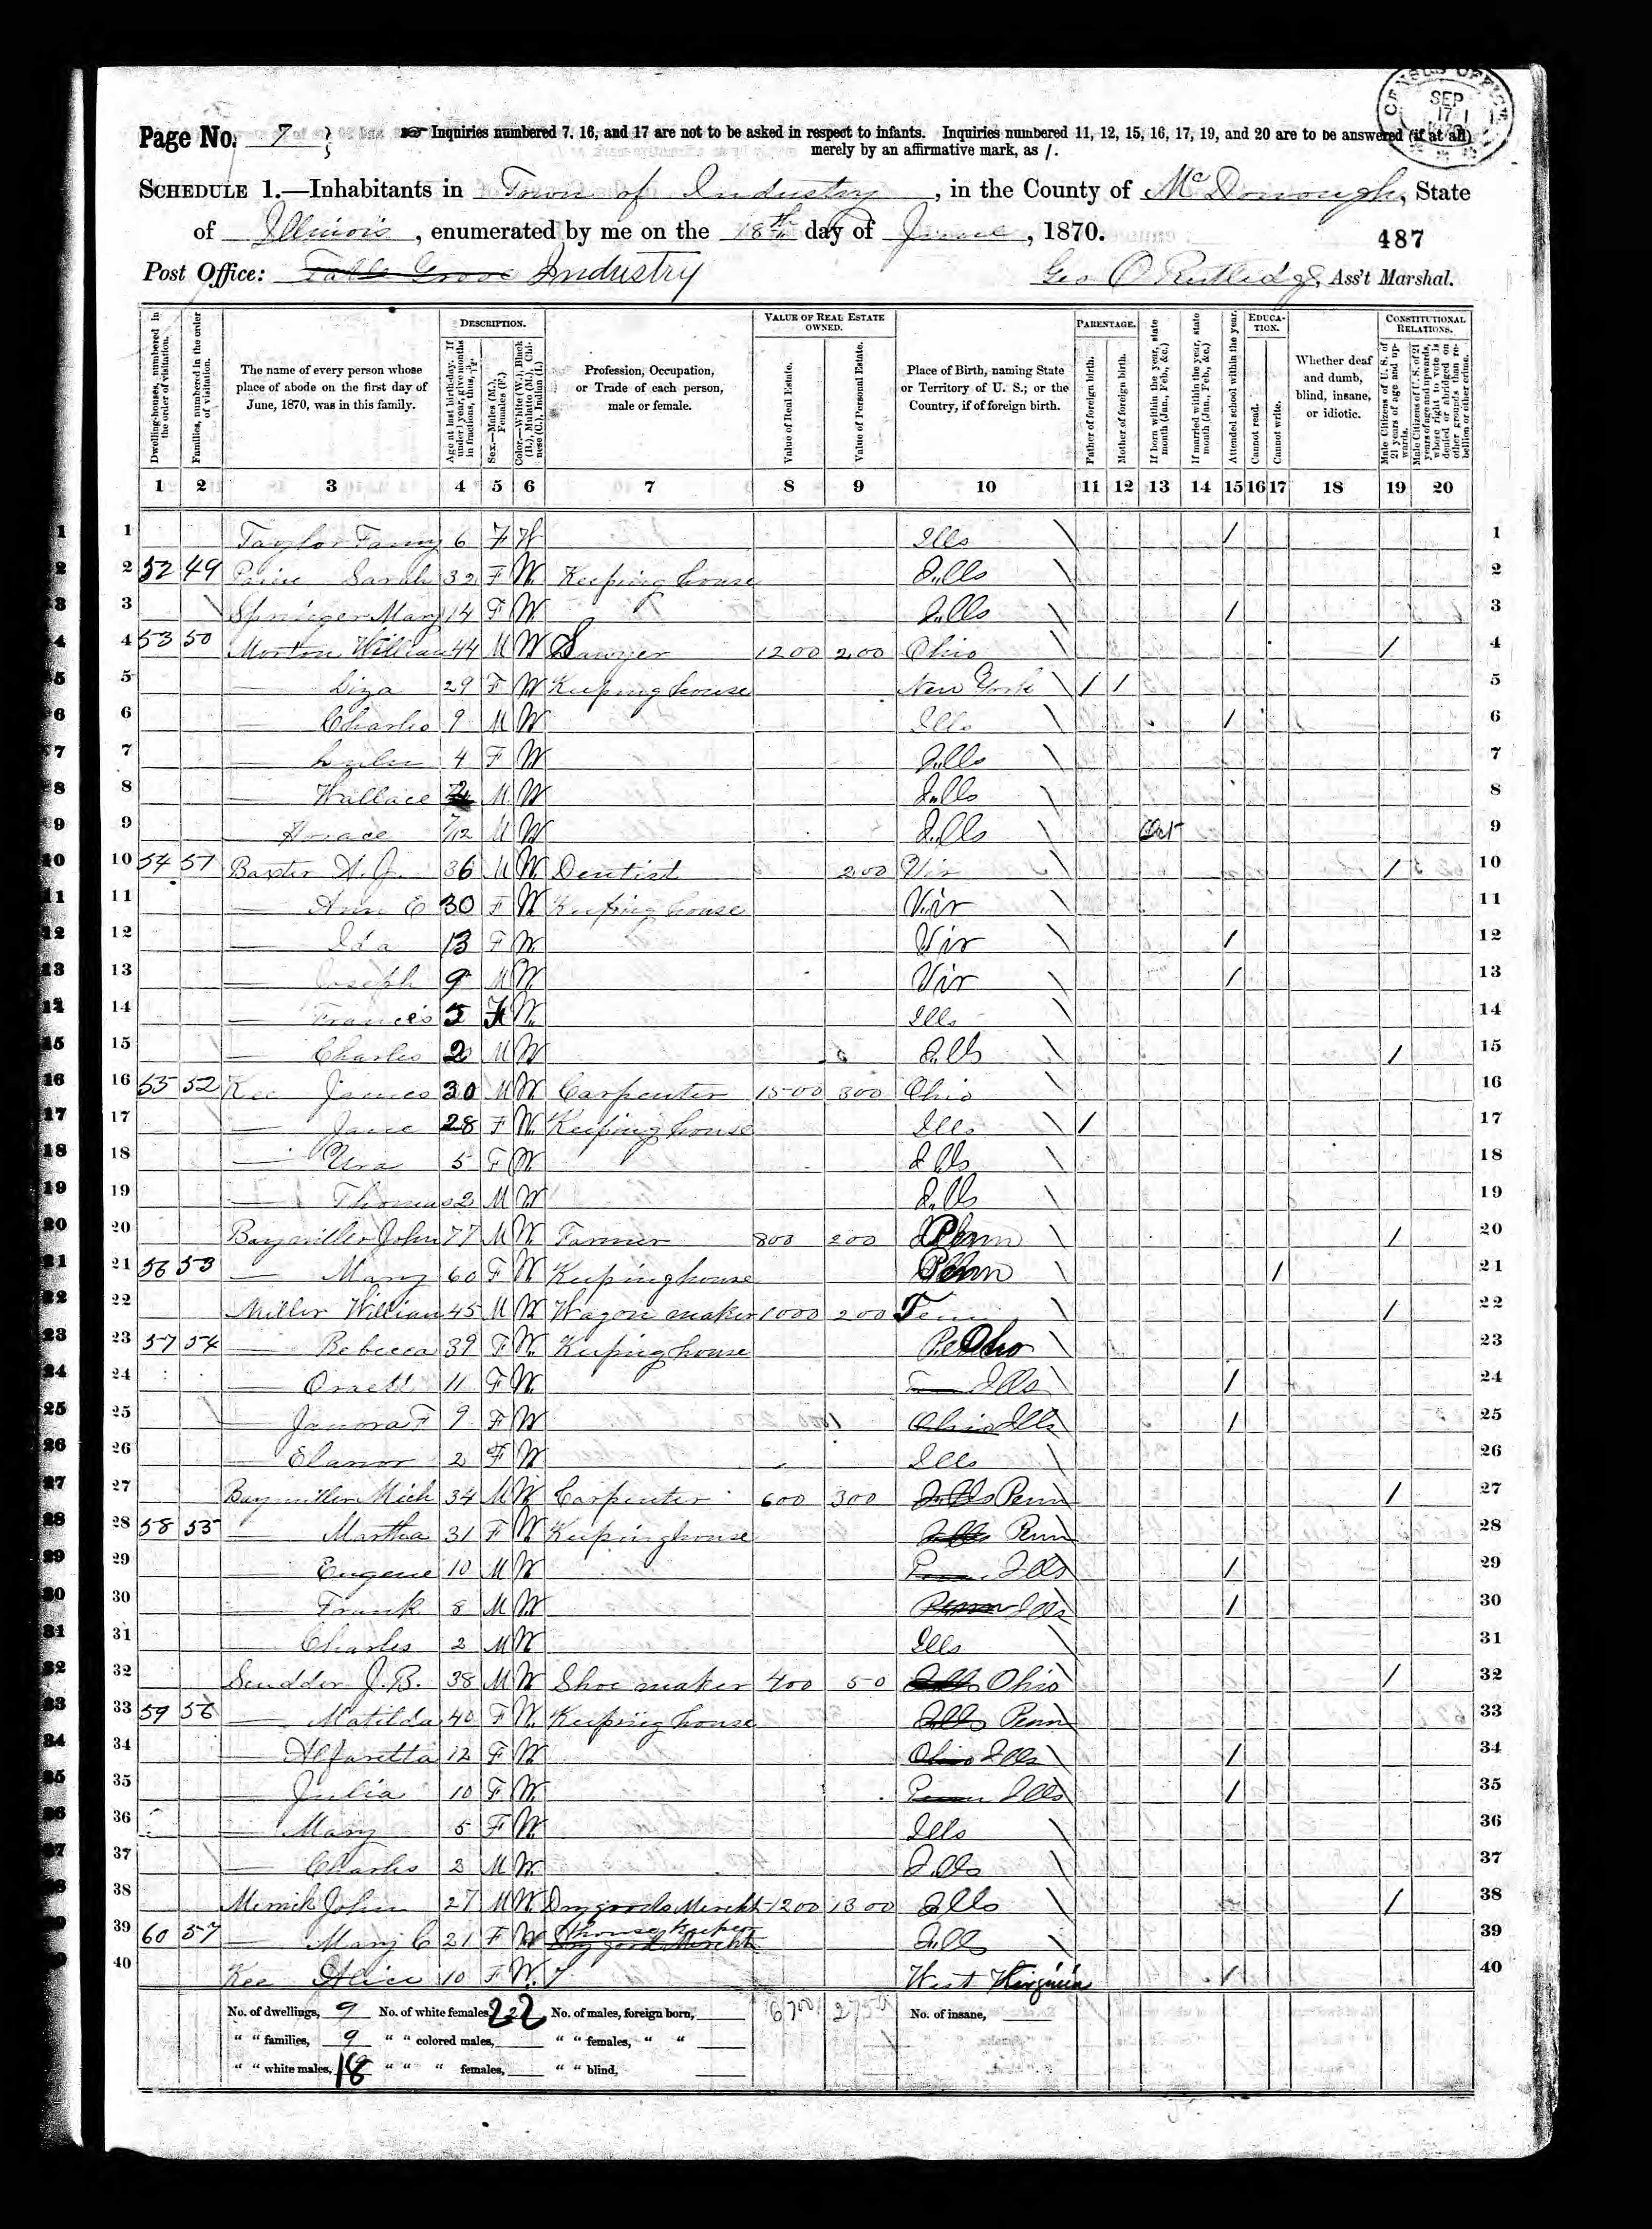 CENSUS OFFICE SEP 17
Page No. 7 Inquiries numbered 7, 16, and 17 are not to be asked in respect to infants. Inquiries numbered 11, 12, 15, 16, 17, 19, and 20 are to be answered (if at all)
merely by an affirmative mark, as /.
SCHEDULE 1.—Inhabitants in Town of Industry, in the County of McDonough, State
of Illinois, enumerated by me on the 18th day of June, 1870.
487
Post Office: Table Grove Industry Geo O Rutledge, Ass't Marshal.
Dwelling-houses, numbered in the order of visitation.
Families, numbered in the order of visitation.
The name of every person whose place of abode on the first day of June, 1870, was in this family.
DESCRIPTION.
Age at last birth-day. If under 1 year, give months in fractions, thus, 3/12.
Sex.—Males (M.), Females (F.)
Color.—White (W.), Black (B.), Mulatto (M.), Chinese (C.), Indian (I.)
Profession, Occupation, or Trade of each person, male or female.
VALUE OF REAL ESTATE OWNED.
Value of Real Estate.
Value of Personal Estate.
Place of Birth, naming State or Territory of U. S.; or the Country, if of foreign birth.
PARENTAGE.
Father of foreign birth.
Mother of foreign birth.
If born within the year, state month (Jan., Feb., &c.)
If married within the year, state month (Jan., Feb., &c.)
Attended school within the year.
EDUCATION.
Cannot read.
Cannot write.
Whether deaf and dumb, blind, insane, or idiotic.
CONSTITUTIONAL RELATIONS.
Male Citizens of U. S. of 21 years of age and upwards.
Male Citizens of U. S. of 21 years of age and upwards, whose right to vote is denied or abridged on other grounds than rebellion or other crime.
1 2 3 4 5 6 7 8 9 10 11 12 13 14 15 16 17 18 19 20
1 Taylor Fanny 6 F W Ills / 1
2 52 49 Sarah 32 F W Keeping house Ills 2
3 Springer Mary 14 F W Ills / 3
4 53 50 Morton William 44 M W Sawyer 1200 200 Ohio / 4
5 — Liza 29 F W Keeping house New York / / 5
6 — Charles 9 M W Ills / 6
7 — 4 F W Ills 7
8 — Wallace 2 M W Ills 8
9 — Horace 7/12 M W Ills Oct 9
10 54 51 Baxter A. J. 36 M W Dentist 200 Vir / 10
11 — Ann E 30 F W Keeping house Vir 11
12 — Ida 13 F W Vir / 12
13 — Joseph 9 M W Vir / 13
14 — Francis 5 W Ills 14
15 — Charles 2 M W Ills / 15
16 55 52 Kee James 30 M W Carpenter 1500 300 Ohio 16
17 — Jane 28 F W Keeping house Ills / 17
18 — Ura 5 F W Ills 18
19 — Thomas 2 M W Ills 19
20 Baymiller John 77 M W Farmer 800 200 Penn / 20
21 56 53 — Mary 60 F W Keeping house Penn / 21
22 Miller William 45 M W Wagon maker 1000 200 Tenn / 22
23 57 54 — Rebecca 39 F W Keeping house Ohio 23
24 — 11 F W Ills / 24
25 — Janora F 9 F W Ohio Ills / 25
26 — Elanor 2 F W Ills 26
27 Baymiller Mich 34 M W Carpenter 600 300 Ills Penn / 27
28 58 55 — Martha 31 F W Keeping house Ills Penn 28
29 — Eugene 10 M W Penn Ills / 29
30 — Frank 8 M W Penn Ills / 30
31 — Charles 2 M W Ills 31
32 Scudder J. B. 38 M W Shoe maker 400 50 Ills Ohio / 32
33 59 56 — Matilda 40 F W Keeping house Ills Penn 33
34 — Alfaretta 12 F W Ohio Ills / 34
35 — Julia 10 F W Penn Ills / 35
36 — Mary 5 F W Ills 36
37 — Charles 2 M W Ills 37
38 Merrick John 27 M W Dry goods Mercht 1200 1300 Ills / 38
39 60 57 — Mary C 21 F W house Keeper Dry good Mercht Ills 39
40 Kee Alice 10 F W West Virginia / 40
No. of dwellings, 9 No. of white females, 22 No. of males, foreign born, 6700 2750 No. of insane,
" " families, 9 " " colored males, " " females, " "
" " white males, 18 " " " females, " " blind,